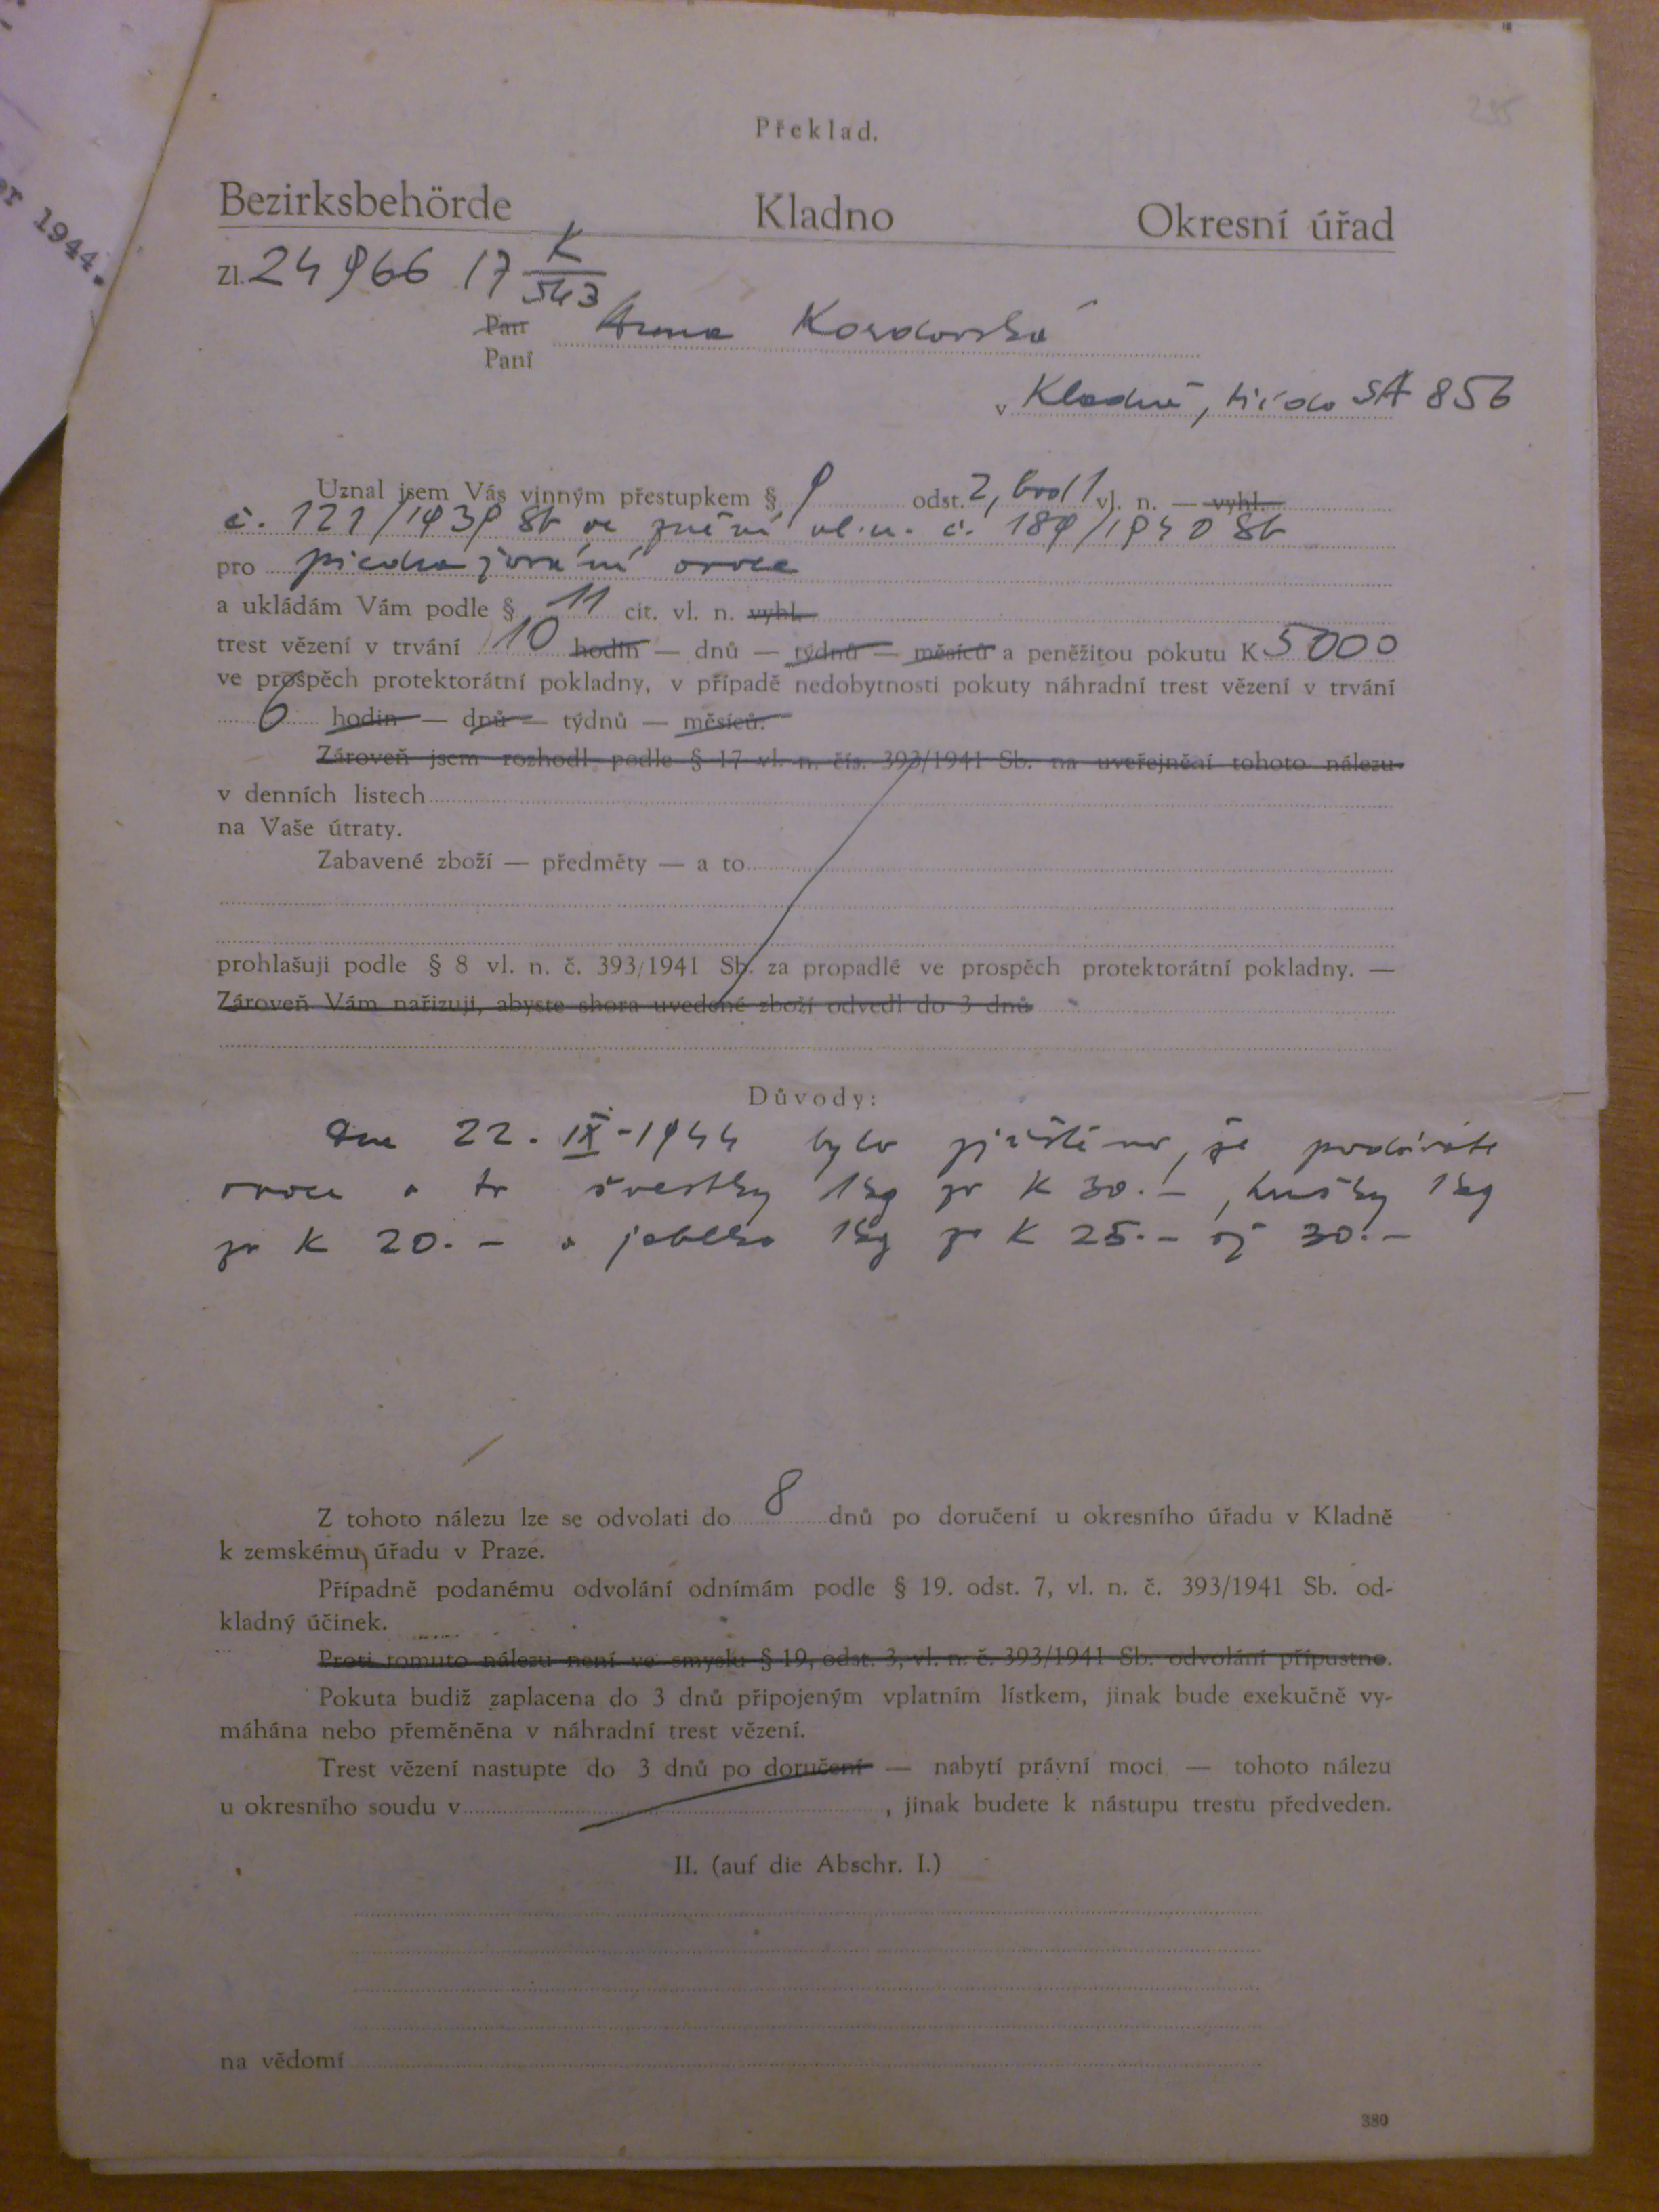 er 1944.
Překlad.
Bezirksbehörde Kladno Okresní úřad
Zl. 24966 17 K
543
Pan
Paní Anna
v Kladně, třída SA 856
Uznal jsem Vás vinným přestupkem § 9 odst. 2, bod 1 vl. n. — vyhl.
č. 121/1939 Sb ve znění vl. n. č. 189/1940 Sb
pro předražování ovoce
a ukládám Vám podle § 11 cit. vl. n. vyhl.
trest vězení v trvání 10 hodin — dnů — týdnů — měsíců a peněžitou pokutu K 5000
ve prospěch protektorátní pokladny, v případě nedobytnosti pokuty náhradní trest vězení v trvání
6 hodin — dnů — týdnů — měsíců.
Zároveň jsem rozhodl podle § 17 vl. n. čís. 393/1941 Sb. na uveřejnění tohoto nálezu
v denních listech
na Vaše útraty.
Zabavené zboží — předměty — a to
prohlašuji podle § 8 vl. n. č. 393/1941 Sb. za propadlé ve prospěch protektorátní pokladny. —
Zároveň Vám nařizuji, abyste shora uvedené zboží odvedl do 3 dnů
Důvody:
Dne 22. IX. 1944 bylo zjištěno, že prodáváte
ovoce a to švestky 1kg za K 30.–, hrušky 1kg
za K 20.– a jablka 1kg za K 25.– až 30.–
Z tohoto nálezu lze se odvolati do 8 dnů po doručení u okresního úřadu v Kladně
k zemskému úřadu v Praze.
Případně podanému odvolání odnímám podle § 19. odst. 7, vl. n. č. 393/1941 Sb. od-
kladný účinek.
Proti tomuto nálezu není ve smyslu § 19, odst. 3, vl. n. č. 393/1941 Sb. odvolání přípustno.
Pokuta budiž zaplacena do 3 dnů připojeným vplatním lístkem, jinak bude exekučně vy-
máhána nebo přeměněna v náhradní trest vězení.
Trest vězení nastupte do 3 dnů po doručení — nabytí právní moci — tohoto nálezu
u okresního soudu v , jinak budete k nástupu trestu předveden.
II. (auf die Abschr. I.)
na vědomí
380